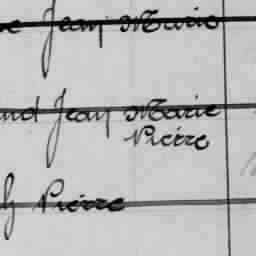 Jean Marie
Jean Marie
Pierre
Pierre